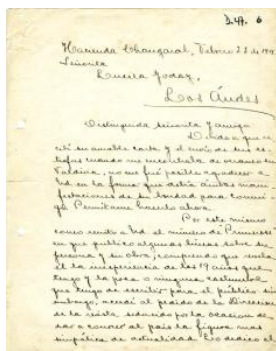 Hacienda Chañaral, Febrero 22 de 191
Señorita
Lucila Godoy,
Los Andes
Distinguida señorita y amiga:
Debido a que re-
cibí su amable carta y el envío de sus
cuando me encontraba de veraneo en
Valdivia, no me fué posible agradecer a
Ud en la forma que debía ambas mani-
festaciones de su bondad para conmi-
go. Permítame hacerlo ahora.
Por este mismo
correo remito a Ud. el número de
en que publico algunas líneas sobre su
persona y su obra, comprendo que
la inexperiencia de los 19 años que
tengo y la poca o ninguna costumbre
que tengo de escribir para el público; sin
embargo, accedí al pedido de la Dirección
de la revista seducido por la ocasión de
dar a conocer al país la figura mas
simpática de actualidad. Es dedico el